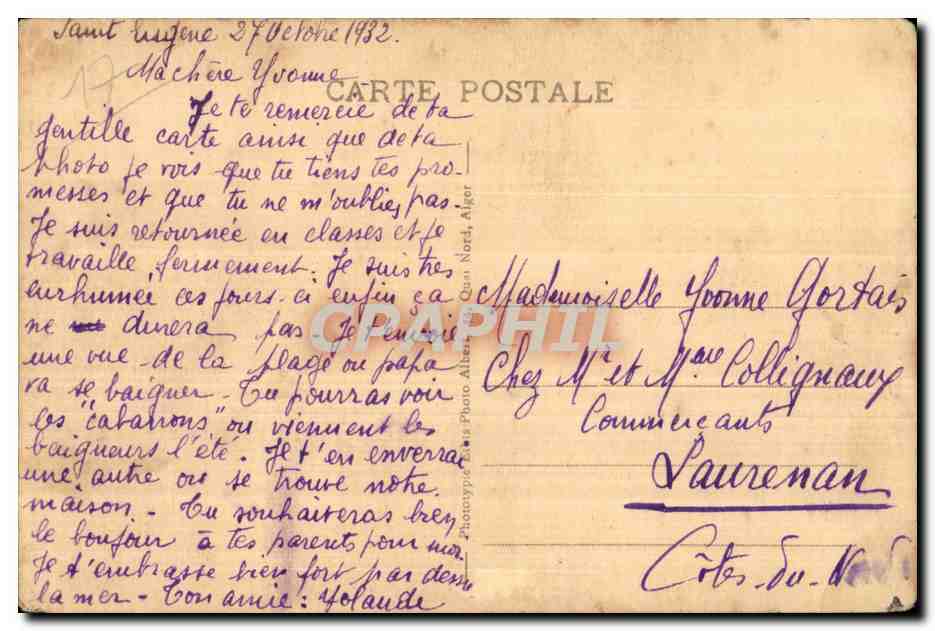 Saint Eugène 27 Octobre 1932.
Ma chère Yvonne
CARTE POSTALE
Je te remercie de ta
gentille carte ainsi que de ta
photo je vois que tu tiens tes pro-
messes et que tu ne m'oublies pas.
Je suis retournée en classes et je
travaille fermement. Je suis très
enrhumée ces jours-ci enfin ça
ne durera pas Je t'envoie
une vue de la plage ou papa
va se baigner - Tu pourras voir
les "cabanons" ou viennent les
baigneurs l'été. Je t'en enverrai
une autre ou se trouve notre
maison - Tu souhaiteras bien
le bonjour à tes parents pour moi
Je t'embrasse bien fort par dessus
la mer - Ton amie : Yolande
Phototypie Photo Albert, Quai Nord, Alger
Mademoiselle Yvonne Gortais
Chez Mr et Mme Collignaux
Commerçants
Laurenan
Côtes-du-Nord
CPAPHIL